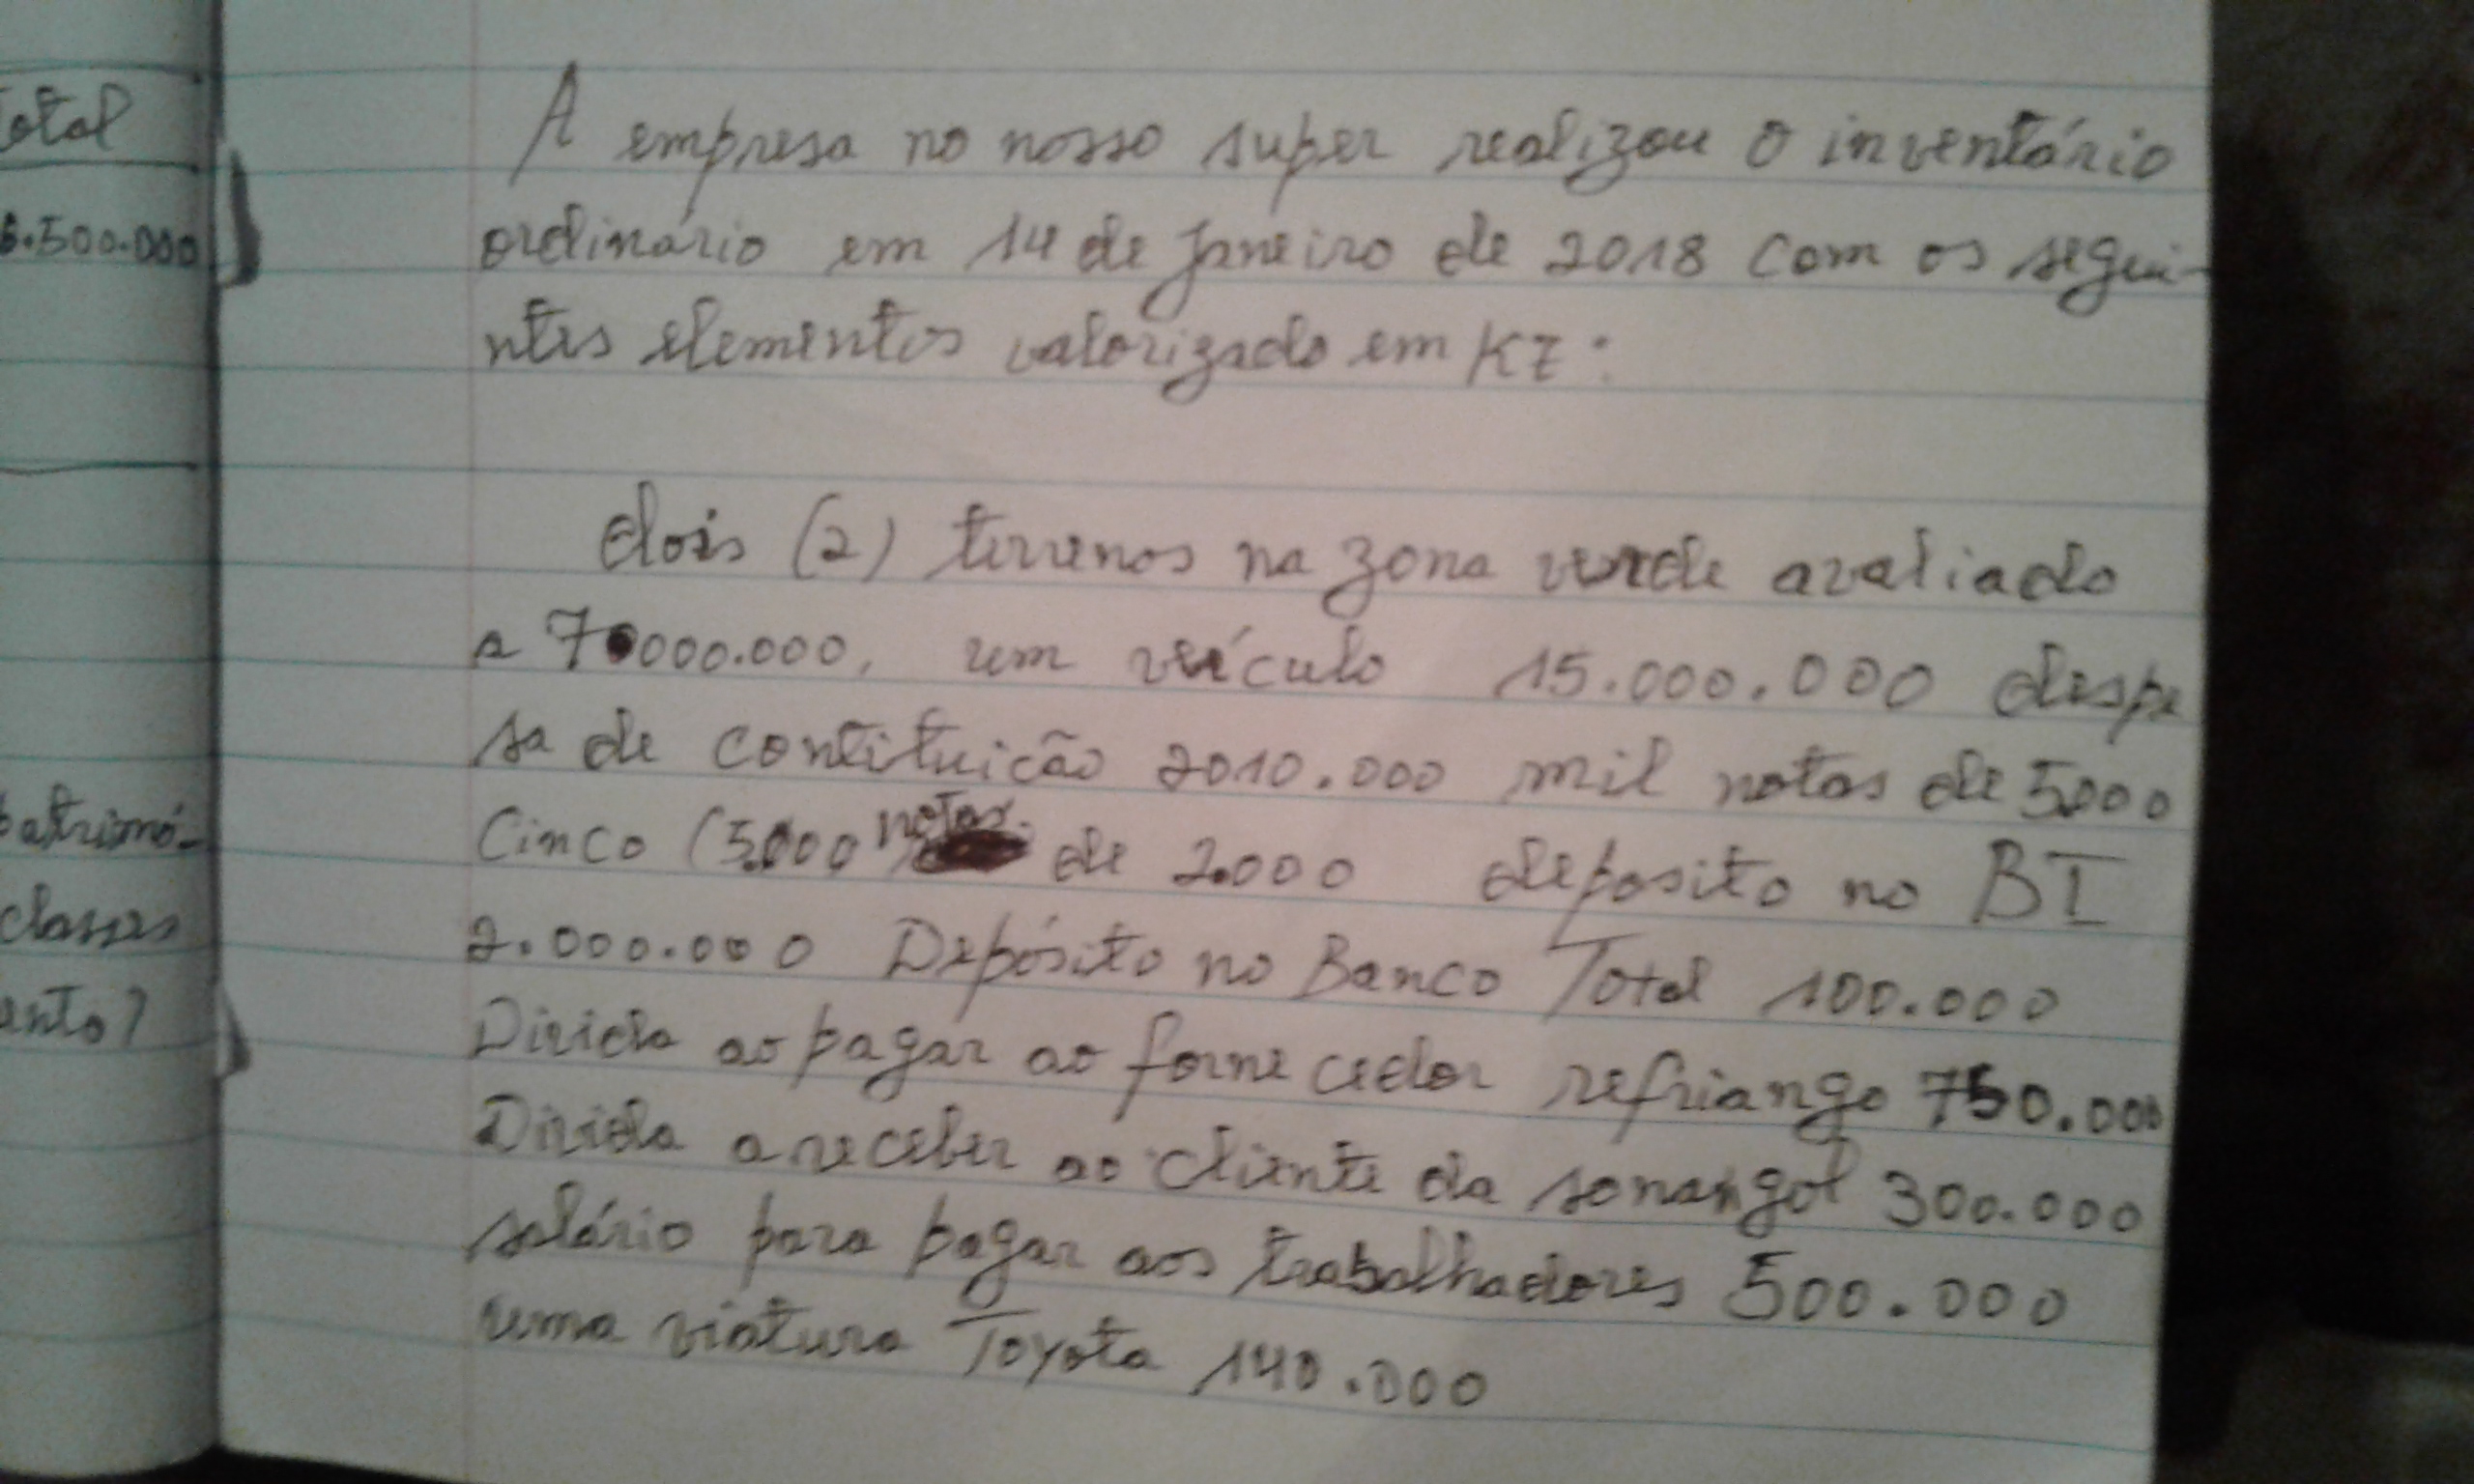 Total
6.500.000
patrimó-
classes
anto?
A empresa no nosso super realizou o inventário
ordinário em 14 de Janeiro de 2018 com os segui-
ntes elementos valorizado em KZ:
dois (2) terrenos na zona verde avaliado
a 70000.000, um veículo 15.000.000 despe
sa de contituicão 2010.000 mil notas de 5000
Cinco (5.000 notas) de 2.000 deposito no BI
2.000.000 Depósito no Banco Total 100.000
Divida ao pagar ao forne cedor refriango 750.000
Divida a receber ao cliente da sonangol 300.000
salário para pagar aos trabalhadores 500.000
uma viatura Toyota 140.000